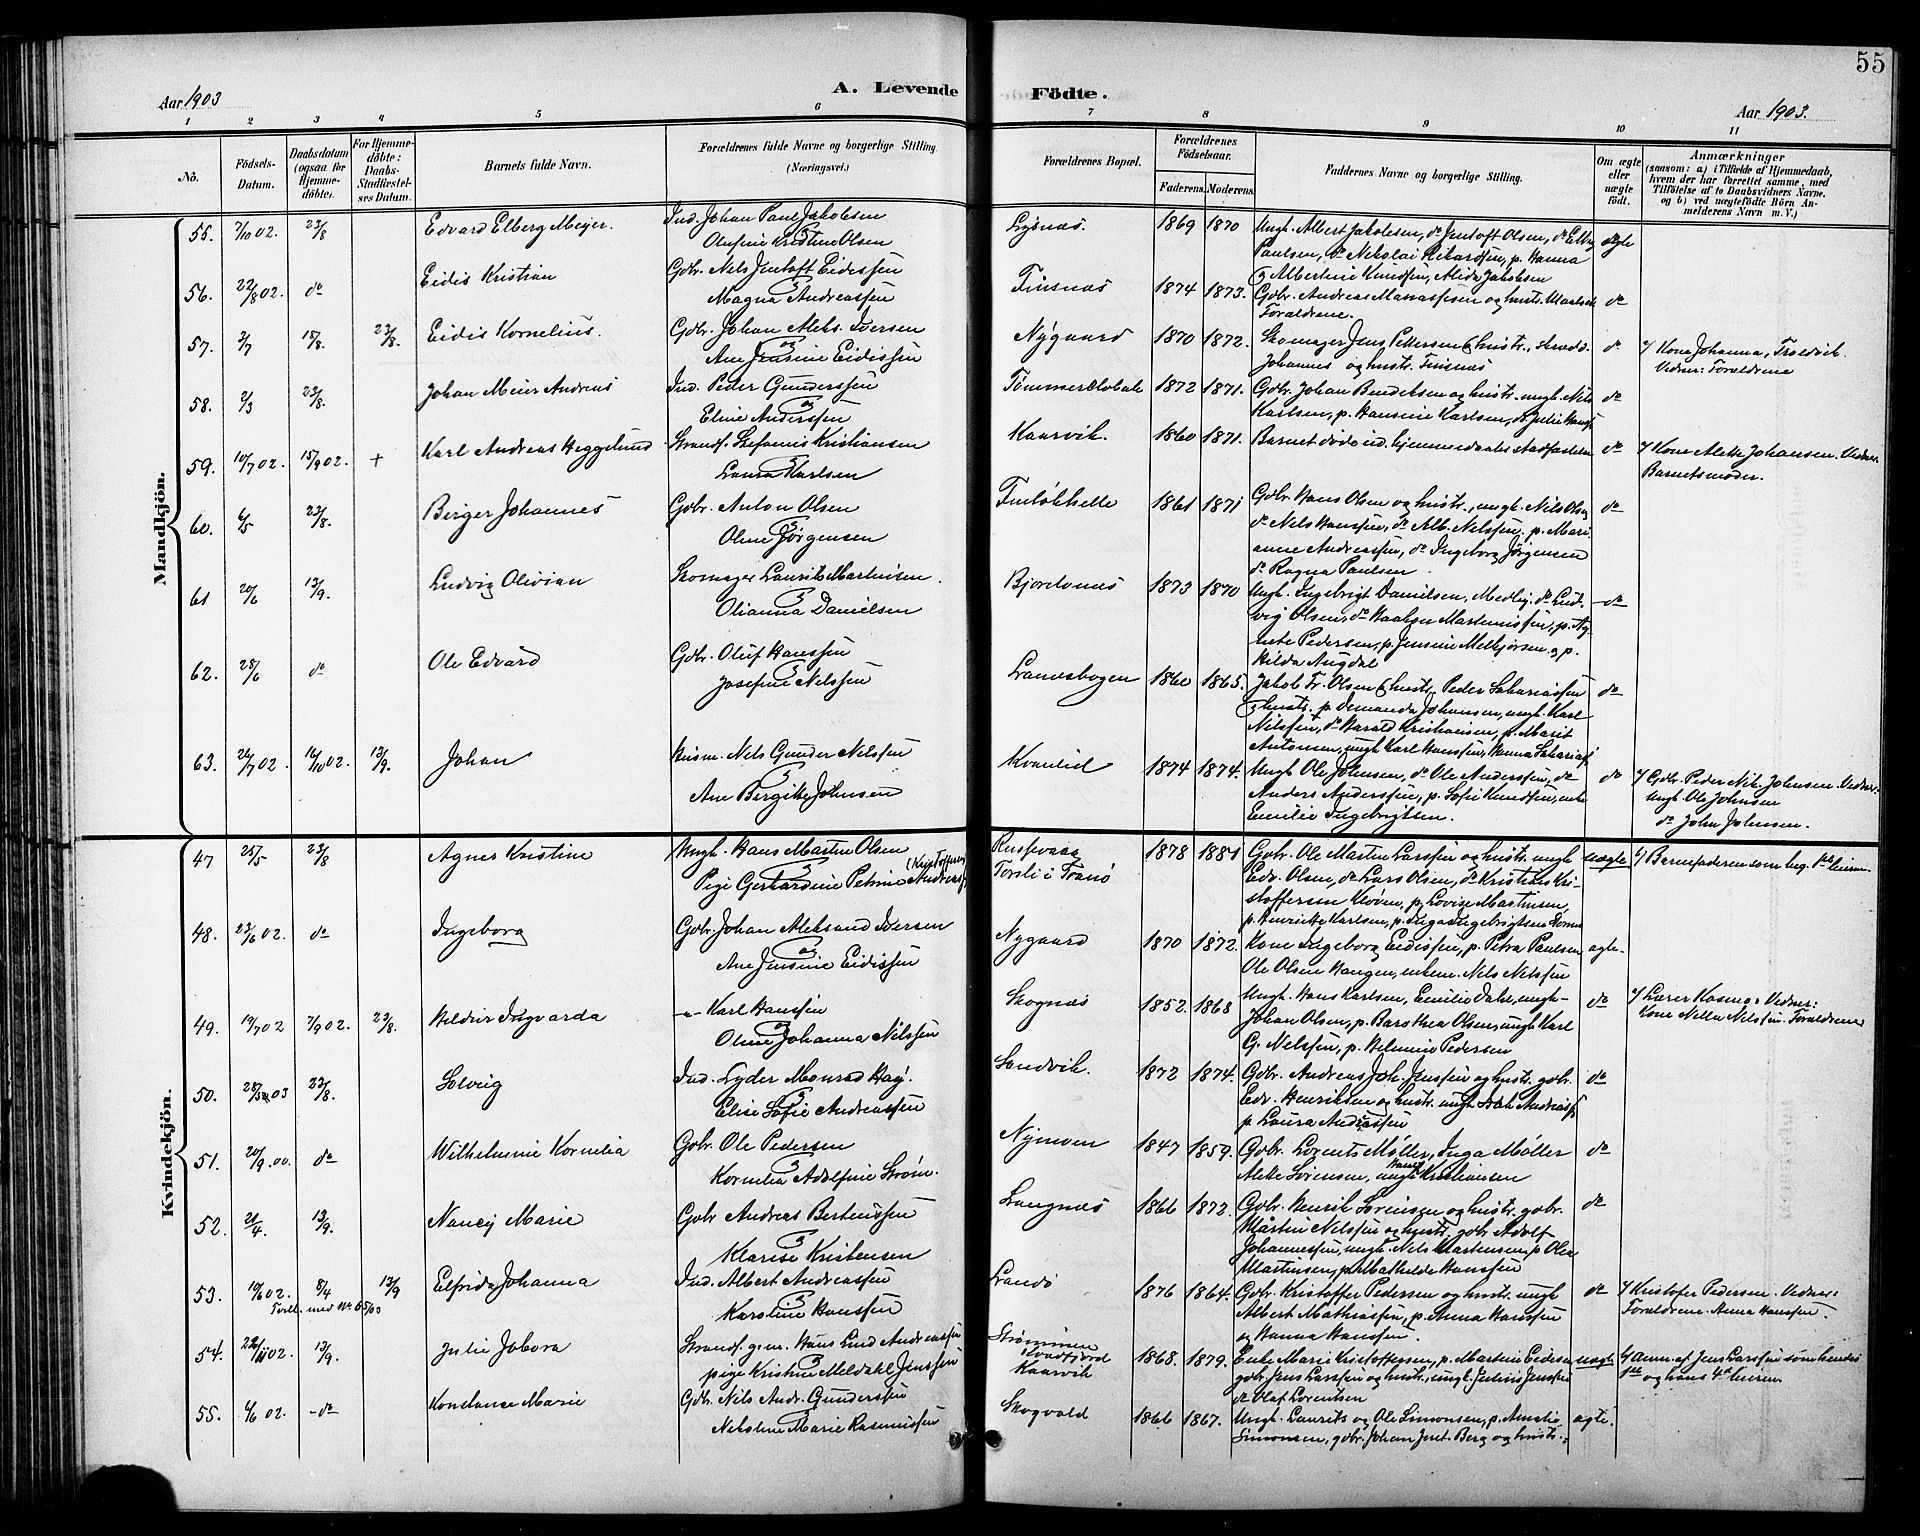 55
Aar 1903
A. Levende Födte.
Aar 1903.
1 2 3 4 5 6 7 8 9 10 11
No.
Födsels-Datum.
Daabsdatum (ogsaa for Hjemmedöbte).
For Hjemmedöbte: Daabs-Stadfæstelses Datum.
Barnets fulde Navn.
Forældrenes fulde Navne og borgerlige Stilling (Næringsvei.)
Forældrenes Bopæl.
Forældrenes Födselsaar.
Faderens. Moderens.
Faddernes Navne og borgerlige Stilling.
Om ægte eller uægte födt.
Anmærkninger
(saasom: a) i Tilfælde af Hjemmedaab, hvem der har forrettet samme, med Tilföielse af to Daabsvidners Navne, og b) ved uægtefödte Börn Anmelderens Navn m. V.)
Mandkjön.
55. 7/10 02. 23/8 Edvard Elberg Meyer. Ind. Johan Paul Jakobsen
Olufine Kristine Olsen
Lysnæs. 1869 1870 Ungk. Albert Jakobsen, do Jentoft Olsen,
Paulsen, do Nikolai Rikardsen, p. Hanna ægte
& Albertine Knudsen, Alida Jakobsen
56. 22/8 02. do Eidis Kristian Gdbr. Nils Jentoft Eidessen
Magna Andreassen
Finsnæs 1874 1873. Gdbr. Andreas Manassesen og hustr.
Forældrene. do
57. 3/7 15/8. 23/8. Eidis Kornelius. Gdbr. Johan Aleks. Iversen
og
Ane Jensine Eidissen
Nygaard 1870 1872. Skomager Jens Pettersen & hustr.,
Johannes og hustr. Finsnæs do Kone Johanna,
Vidner: Forældrene
58. 2/3 23/8. Johan Meier Andreas Ind. Peder Gunderssen
og
Eline Anderssen
1872 1871. Gdbr. Johan Bendiksen og hustr. ungk. Nils
Karlsen, p. Hansine Karlsen, do
59. 10/7 02. 15/9 02. + Karl Andreas Heggelund Strandf. Stefanus Kristiansen
Laura Karlsen
Kaarvik. 1860 1871. Barnet döde ind. hjemmedaabs Stadfæstelse do Kone Alette Johansen. Vidner
Barnets moder.
60. 6/5 23/8. Birger Johannes Gdbr. Anton Olsen
Oline Jørgensen
1861 1871 Gdbr. Hans Olsen og hustr., ungk. Nils Olsen
do Nels Hanssen, do Alb. Nelssen, p. Mari-
anne Andreassen, do Ingeborg Jørgensen
do Ragna Paulsen. do
61 20/6 13/9. Ludvig Olivian Skomager Laurits Martinsen.
Olianna Danielsen
Bjorelvnæs 1873 1870 Ungk. Ingebrigt Danielsen, Medby, do Lud-
vig Olsen, do Haakon Martinussen, p. Ag-
nete Pedersen, p. Jensine Melkjorsen og p.
Hilda Angdal do
62. 28/6 do Ole Edvard Gdbr. Oluf Hanssen
Josefine Nilssen
Lanesbogen 1860 1865. Jakob Fr. Olsen & hustr. Peder Sakariassen
& hustr. p. Amanda Johansen, ungk. Karl
Nilssen, do Harald Kristiansen, p. Marit
Antonsen, ungk Karl Hanssen, Hanna Sakariass. do
63. 24/7 02. 16/10 02. 13/9. Johan Husm. Nels Gunder Nelssen
Ane Birgitte Johnsen
Kvanlid 1874 1874. Ungk. Ole Johnsen, do Ole Anderssen, do
Anders Anderssen, p. Sofie Knudsen, enke
Emilie Ingebrigtsen do Gdbr. Peder Nik. Johnsen. Vidner:
Ungk. Ole Johnsen
do John Johnsen.
Kvindekjön.
47 25/5 23/8 Agnes Kristine Ungk. Hans Martin Olsen
(Kristoffersen)
Pige Gerhardine Petrine Andreass.
Russevaag
Torsli i Tranö 1878 1881 Gdbr. Ole Martin Larssen og hustr. ungk
Edv. Olsen, do Lars Olsen, do Kristian Kri-
stoffersen Kløven, p. Lovise Martinsen,
p. Henrikke Karlsen, p. Inga Ingebrigtsen uægte b/ Barnefaderen som beg. 1ste leierm.
48. 23/6 02. do Ingeborg Gdbr. Johan Aleksand Iversen
og
Ane Jensine Eidissen
Nygaard 1870 1872. Kone Ingeborg Eidissen, p. Petra Paulsen
Ole Olsen Haugen, enkem. Nels Nelssen ægte
49. 19/7 02 7/9 02. 23/8. Hildur Ingvarda -„- Karl Hanssen
Oline Johanna Nilssen
Skognæs 1852. 1868 Ungk. Hans Karlsen, Emilie Dahl, ungk-
Johan Olsen, p. Barothea Olsen, ungk Karl
G. Nelssen, p. Helmine Pedersen do Lærer Kasmo. Vidner:
Kone Nella Nilssen. Forældrene
50. 28/3 03 23/8. Solveig Ind. Lyder Monrad Hay.
Elise Sofie Andreassen
Sandvik. 1872 1874. Gdbr. Andreas Joh. Jenssen og hustr. gdbr.
Edv. Henriksen og hustr. ungk
p Laura Andreassen do
51. 20/9. 00. do Wilhelmine Kornelia Gdbr. Ole Pedersen
Kornelia Adolfine Strøm.
Nymoen 1847 1859. Gdbr. Lorents Møller, Inga Møller
Alette Sørensen, ungk Kristiansen do
52. 21/4. 13/9. Nancy Marie Gdbr Andreas Berteussen
Klarise Kristensen
Langnæs 1866 1872. Gdbr. Henrik Sørensen og hustr. gdbr.
Martin Nilssen og hustr. gdbr. Adolf
Johannessen, ungk. Nils Martensen, p Olea
Martinsen, p. Mathilde Hanssen do
53. 10/6 02. 8/4 13/9 Elfrida Johanna Ind. Albert Andreassen
Karoline Hanssen
Landö 1876 1864. Gdbr. Kristoffer Pedersen og hustr. ungk
Albert Mathiassen, p. Anna Hanssen
og Hanna Hanssen. do Kristofer Pedersen. Vidner:
Forældrene. Anna Hanssen.
54. 02. 13/9. Julie Jobora Strandf. g.m. Hans Lind Andreassen
pige Kristine Meldahl Jenssen
Strømmen
Kvædfjord
Kaarvik 1868. 1879. Enke Marie Kristoffersen, p. Martine Eidesen
gdbr. Jens Larssen og hustr., ungk. Julius Jenssen
do Olaf Lorentsen uægte Anm. af Jens Larssen som hendes
1ste og hans 4de leierm
55. 6/6 02. - do Konstance Marie Gdbr. Nils Andr. Gunderssen
Nikoline Marie Rasmussen
Skogvold 1866 1867. Ungk. Laurits og Ole Simonsen, p. Amalie
Simonsen, gdbr. Johan Jent. Berg og hustr. ægte.